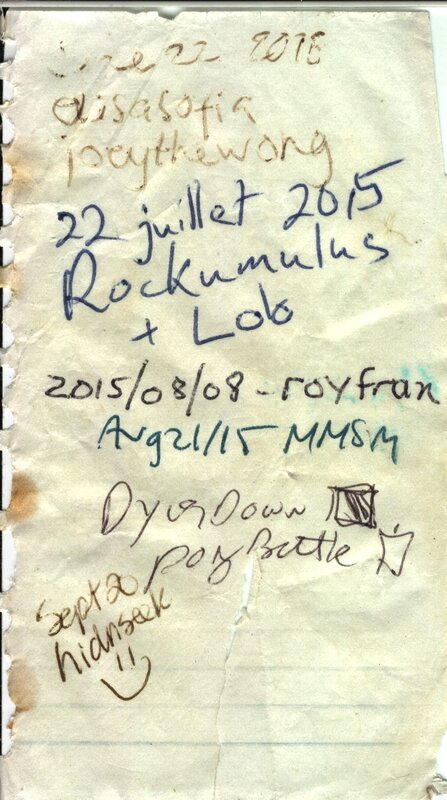 22 2015
aisasofia
joeythewong
22 juillet 2015
Rockumulus
+ Lob
2015/08/08 - royfran
Aug 21/15 MMSM
Down
Sept 20
hidnseek